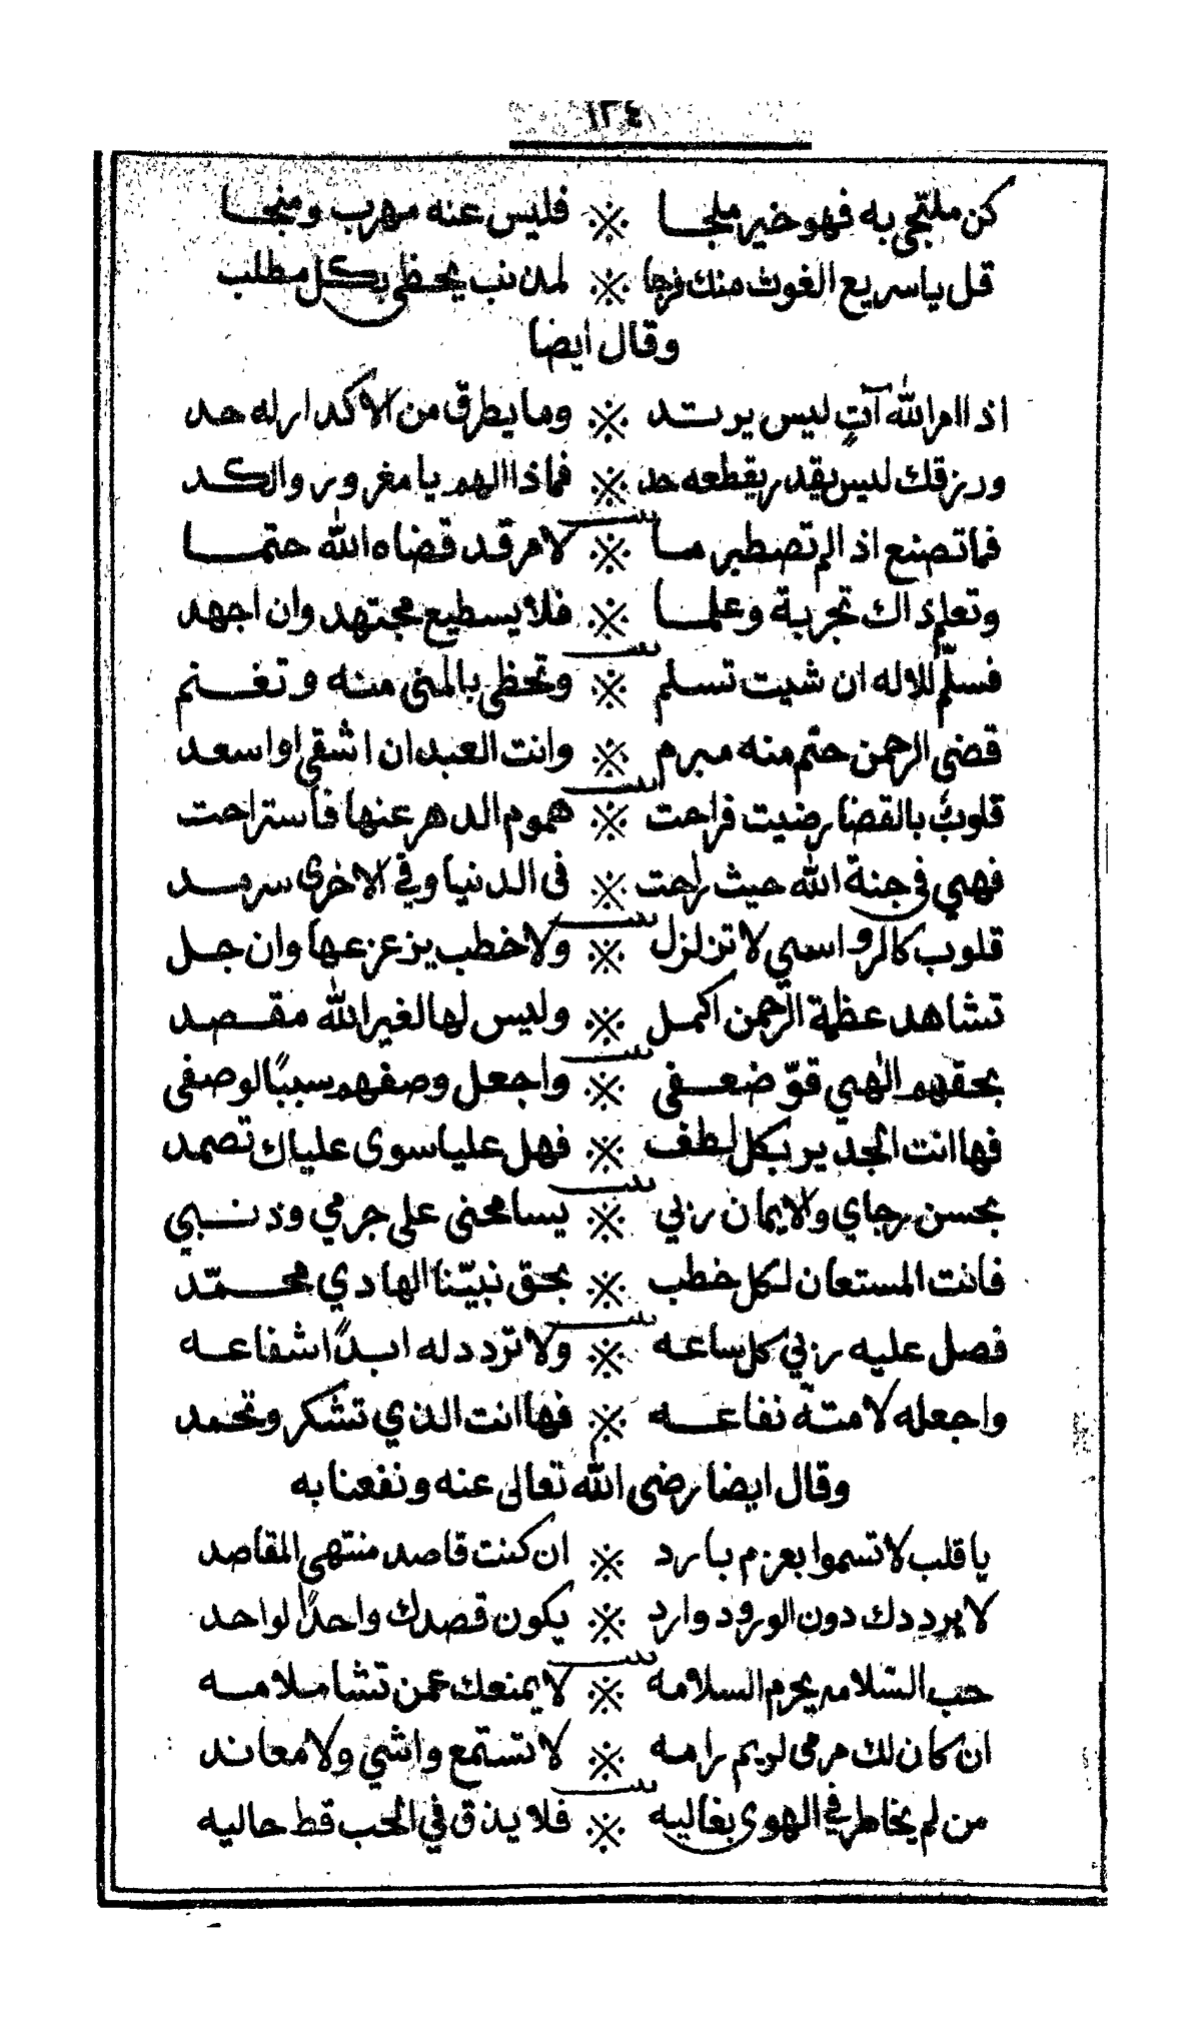 ١٣٤
كن ملتجى به فهو خير ملجا ※ فليس عنه مهرب ومنجا
قل ياسريع الغوث منك فرجا ※ لمذنب يحظى بكل مطلب
وقال ايضا
اذا امر الله آتٍ ليس يرتد ※ وما يطرق من الاكدار له حد
ورزقك ليس يقدر يقطعه حد ※ فماذا الهم يا مغرور والكد
فما تصنع اذا لم تصطبر ما ※ لامر قد قضاه الله حتما
وتعلم ذاك تجربة وعلما ※ فلا يسطيع مجتهد وان اجهد
فسلّم للاله ان شيت تسلم ※ وتحظى بالمنى منه وتغنم
قضى الرحمن حتم منه مبرم ※ وانت العبد ان اشقى او اسعد
قلوبٌ بالقضا رضيت فراحت ※ هموم الدهر عنها فاستراحت
فهي في جنة الله حيث راحت ※ فى الدنيا وفي الاخرى سرمد
قلوب كالرواسي لا تزلزل ※ ولا خطب يزعزعها وان جل
تشاهد عظمة الرحمن اكمل ※ وليس لها لغير الله مقصد
بحقهم الهي قوّ ضعفي ※ واجعل وصفهم سببًا لوصفى
فها انت الجدير بكل لطف ※ فهل عليا سوى علياك تصمد
بحسن رجاي والايمان ربي ※ يسامحنى على جرمي وذنبي
فانت المستعان لكل خطب ※ بحق نبيّنا الهادي محمّد
فصل عليه ربي كل ساعه ※ ولا تردد له ابدًا شفاعه
واجعله لامتهّ نفاعه ※ فها انت الذي تشكر وتحمد
وقال ايضا رضى الله تعالى عنه ونفعنا به
يا قلب لا تسموا بعزم بارد ※ ان كنت قاصد منتهى المقاصد
لا يرددك دون الورود وارد ※ يكون قصدك واحدًا لواحد
حب السّلامه يحرم السلامه ※ لا يمنعك عمن تشا ملامه
ان كان لك مرمى لريم رامه ※ لا تستمع واشي ولا معاند
من لم يخاطر في الهوى بغاليه ※ فلا يذق في الحب قط حاليه